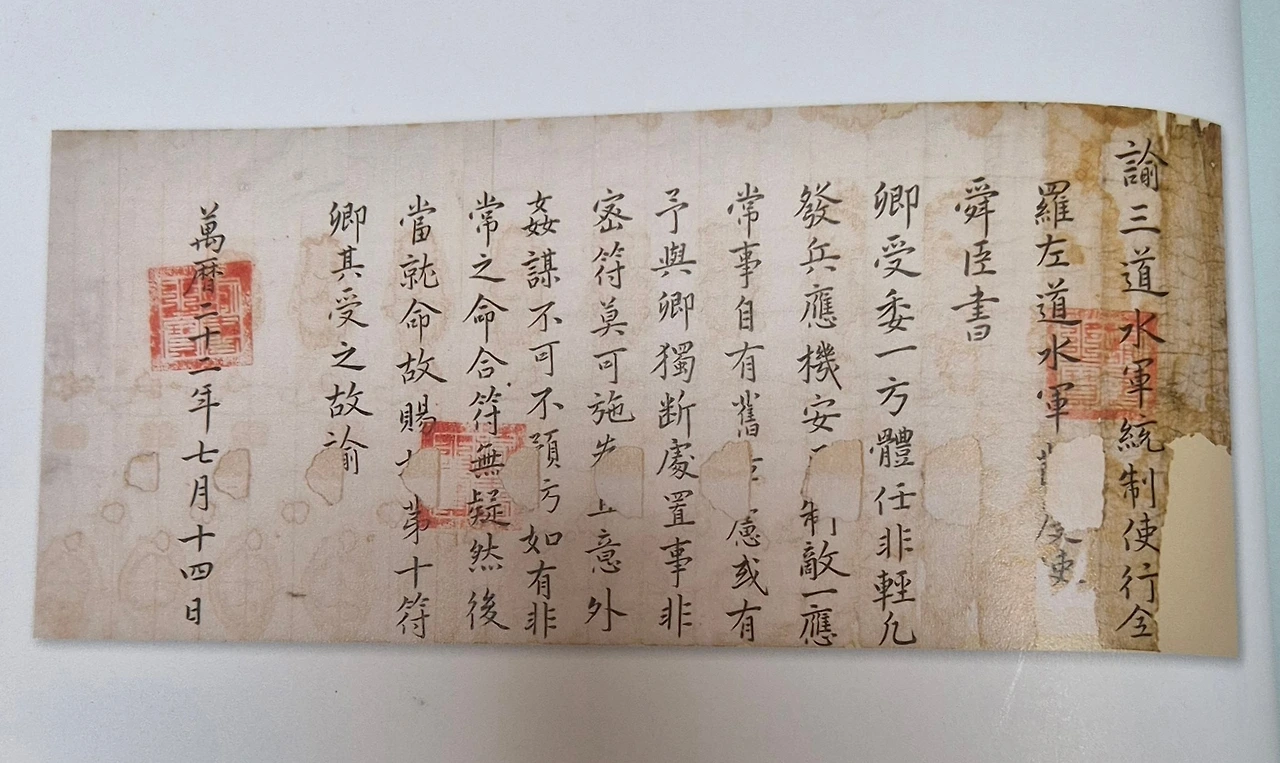 諭三道水軍統制使行全
羅左道水軍使
舜臣書
卿受委一方體任非輕凡
發兵應機安制敵一應
常事自有舊慮或有
予與卿獨断處置事非
宻符莫可施意外
姦謀不可不預方如有非
常之命合符無疑然後
當就命故賜第十符
卿其受之故諭
萬曆二十二年七月十四日